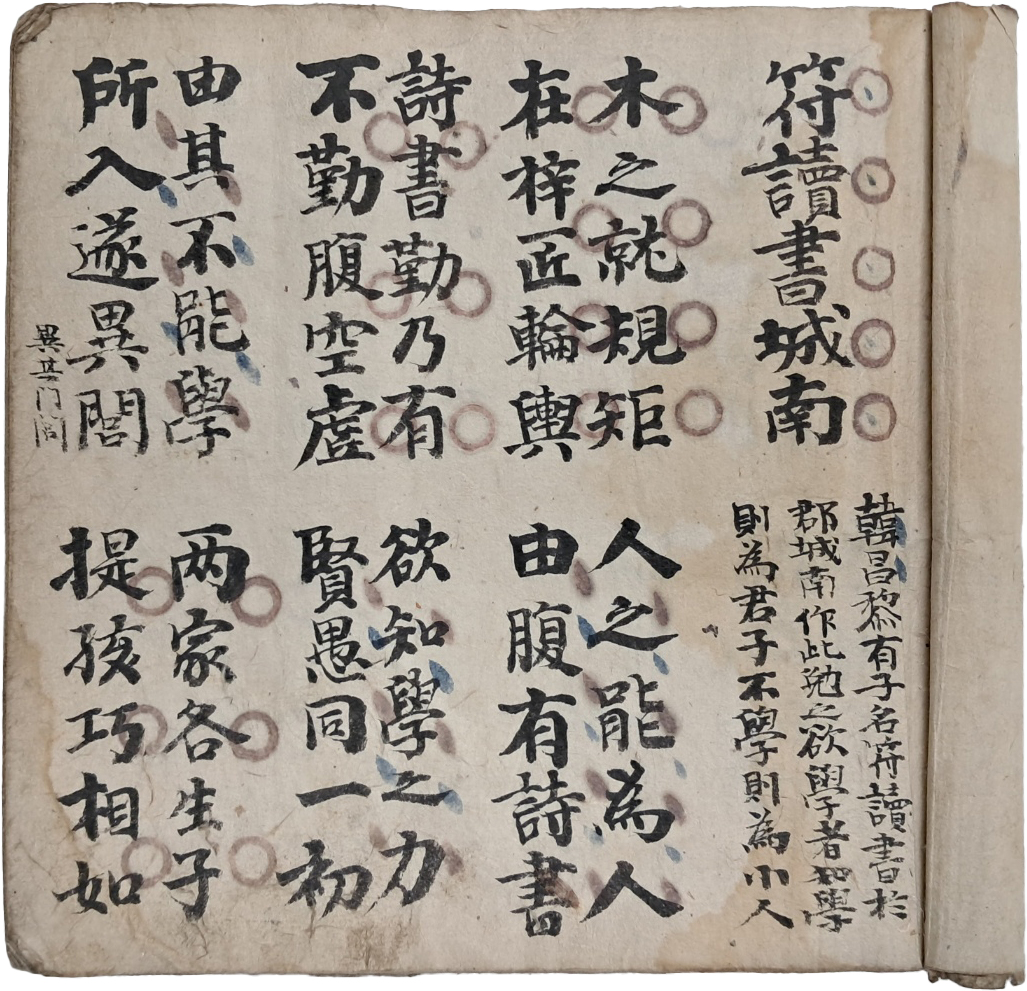 符讀書城南
韓昌黎有子名符讀書於
郡城南作此勉之欲學者知學
則為君子不學則為小人
木之就規矩
在梓匠輪輿
人之能為人
由腹有詩書
詩書勤乃有
不勤腹空虛
欲知學之力
賢愚同一初
由其不能學
所入遂異閭
異其門閭
两家各生子
提孩巧相如